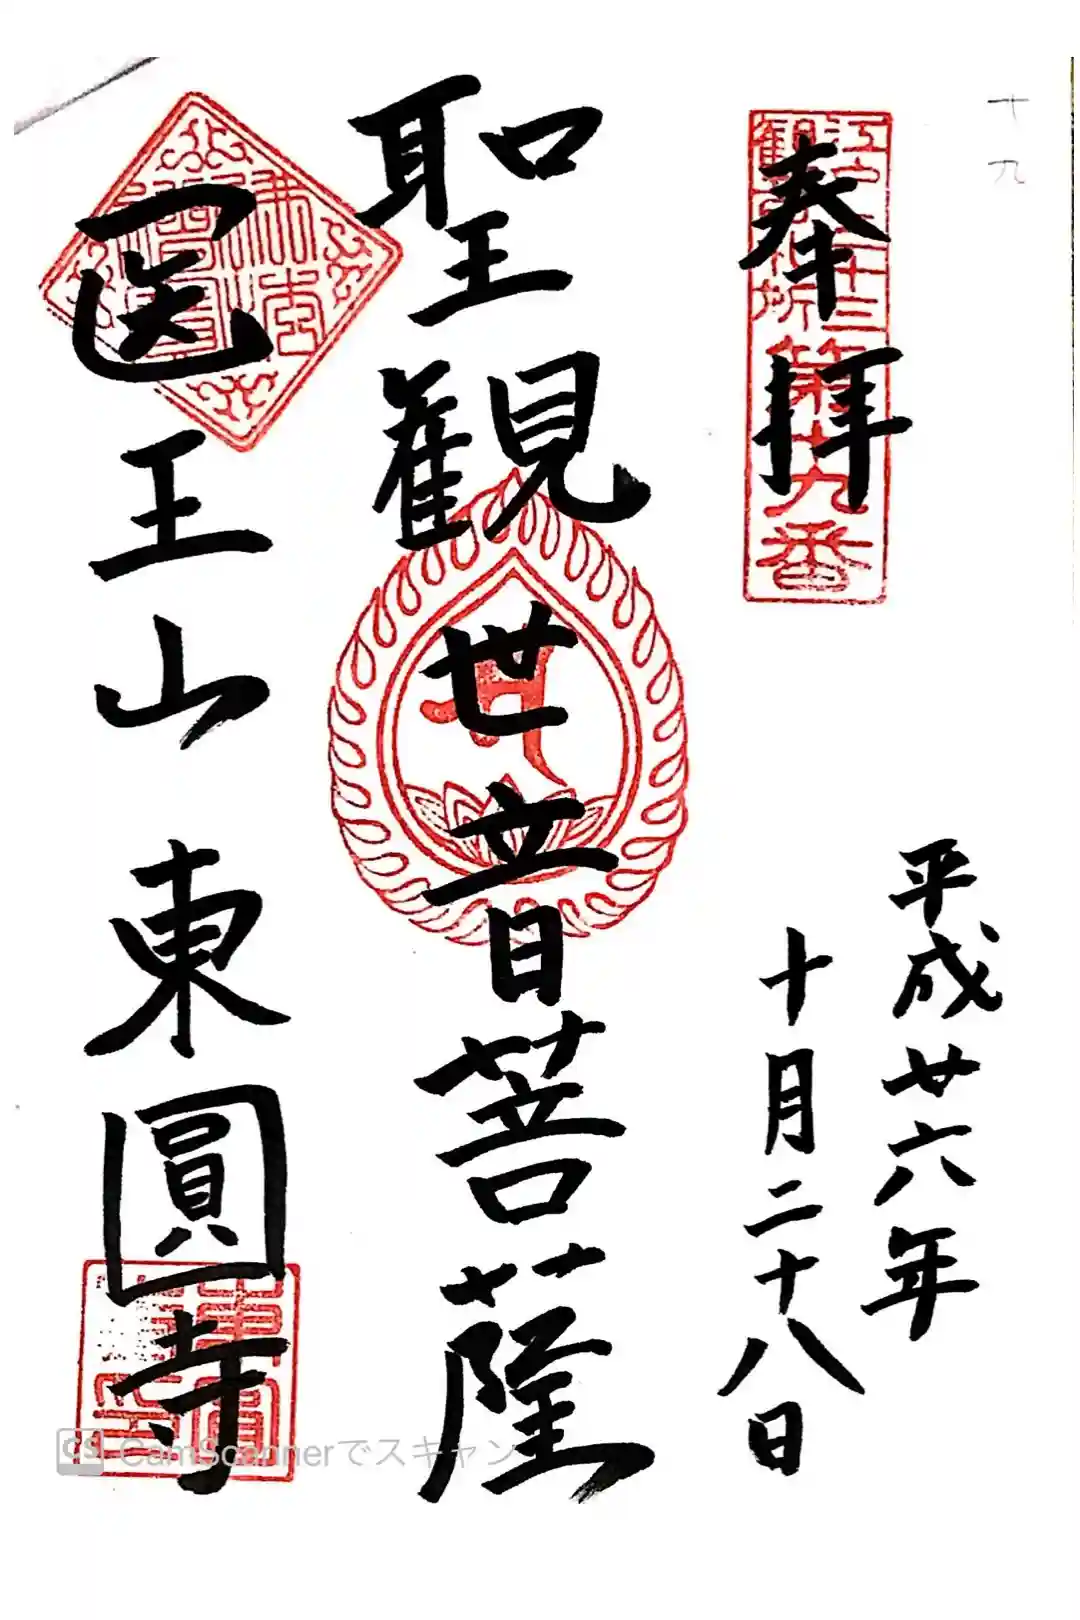 十九
奉拝
江戸三十三
観音札所第十九番
平成廿六年
十月二十八日
聖観世音菩薩
医王山東圓寺
CS CamScannerでスキャン